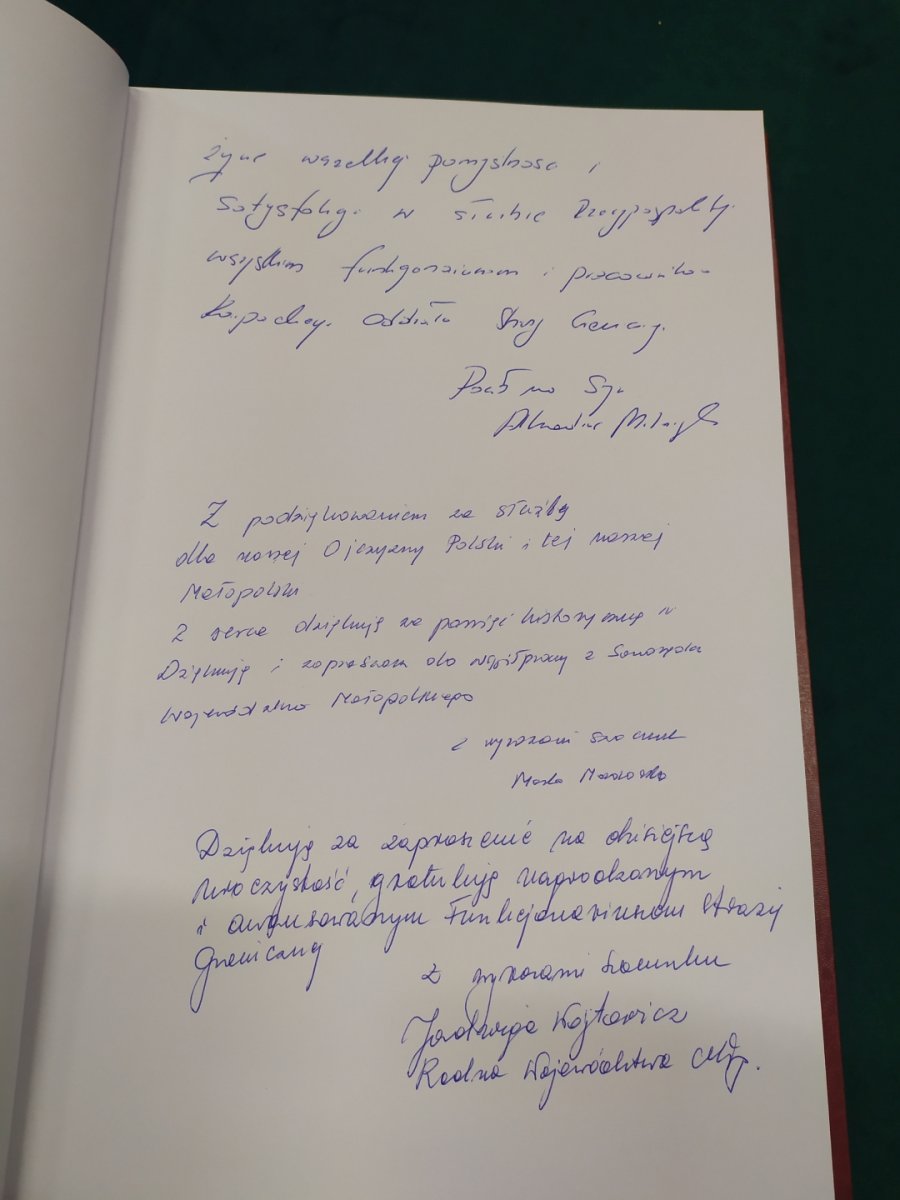 Życzę wszelkiej pomyślności i
Satysfakcji w służbie Rzeczypospolitej
wszystkim funkcjonariuszom i pracownikom
Karpackiego Oddziału Straży Granicznej.
Poseł na Sejm
Z podziękowaniem za służbę
dla naszej Ojczyzny Polski i tej naszej
Małopolski
Z serca dziękuję za pamięć historyczną
Dziękuję i zapraszam do współpracy z
Województwa Małopolskiego
z wyrazami szacunku
Marta
Dziękuję za zaproszenie na dzisiejszą
uroczystość, gratuluję nagrodzonym
i awansowanym Funkcjonariuszom Straży
Granicznej
Z wyrazami szacunku
Jadwiga Wójtowicz
Radna Województwa Młp.